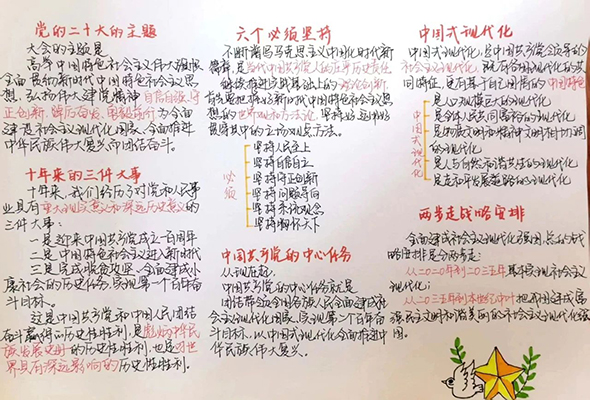 党的二十大的主题
大会的主题是
高举中国特色社会主义伟大旗帜
全面贯彻新时代中国特色社会主义思
想，弘扬伟大建党精神 自信自强、守
正创新，踔厉奋发、勇毅前行 为全面
建设社会主义现代化国家、全面推进
中华民族伟大复兴而团结奋斗。
十年来的三件大事
十年来，我们经历了对党和人民事
业具有重大现实意义和深远历史意义的
三件大事：
一是迎来中国共产党成立一百周年
二是中国特色社会主义进入新时代
三是完成脱贫攻坚、全面建成小
康社会的历史任务，实现第一个百年奋
斗目标。
这是中国共产党和中国人民团结
奋斗赢得的历史性胜利，是彪炳中华民
族发展史册的历史性胜利，也是对世
界具有深远影响的历史性胜利。
六个必须坚持
不断谱写马克思主义中国化时代新
篇章，是当代中国共产党人的庄严历史责任
继续推进实践基础上的理论创新
首先要把握好新时代中国特色社会主义思
想的世界观和方法论，坚持好运用好
贯穿其中的立场观点方法。
必须
坚持人民至上
坚持自信自立
坚持守正创新
坚持问题导向
坚持系统观念
坚持胸怀天下
中国共产党的中心任务
从现在起，
中国共产党的中心任务就是
团结带领全国各族人民全面建成社
会主义现代化强国、实现第二个百年奋
斗目标，以中国式现代化全面推进中
华民族伟大复兴。
中国式现代化
中国式现代化，是中国共产党领导的
社会主义现代化，既有各国现代化的共
同特征，更有基于自己国情的中国特色
中国式现代化
是人口规模巨大的现代化
是全体人民共同富裕的现代化
是物质文明和精神文明相协调
的现代化
是人与自然和谐共生的现代化
是走和平发展道路的现代化
两步走战略安排
全面建成社会主义现代化强国，总的战
略安排是分两步走：
从二〇二〇年到二〇三五年基本实现社会主义
现代化；
从二〇三五年到本世纪中叶把我国建成富
强民主文明和谐美丽的社会主义现代化强
国。